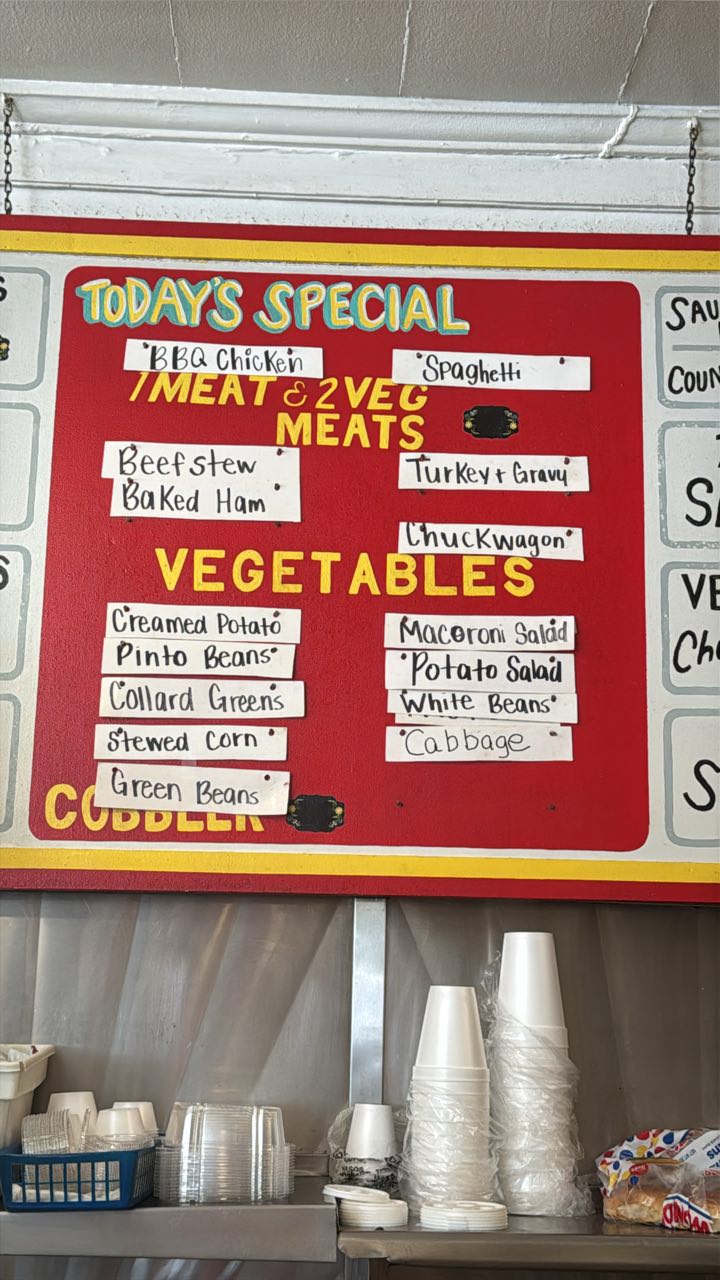 TODAY'S SPECIAL
BBQ Chicken
Spaghetti
1 MEAT & 2 VEG
MEATS
Beef stew
Baked Ham
Turkey + Gravy
Chuckwagon
VEGETABLES
Creamed Potato
Pinto Beans
Collard Greens
Stewed Corn
Green Beans
Macoroni Salad
Potato Salad
White Beans
Cabbage
COBBLER
SAU
COUN
VE
Ch
S